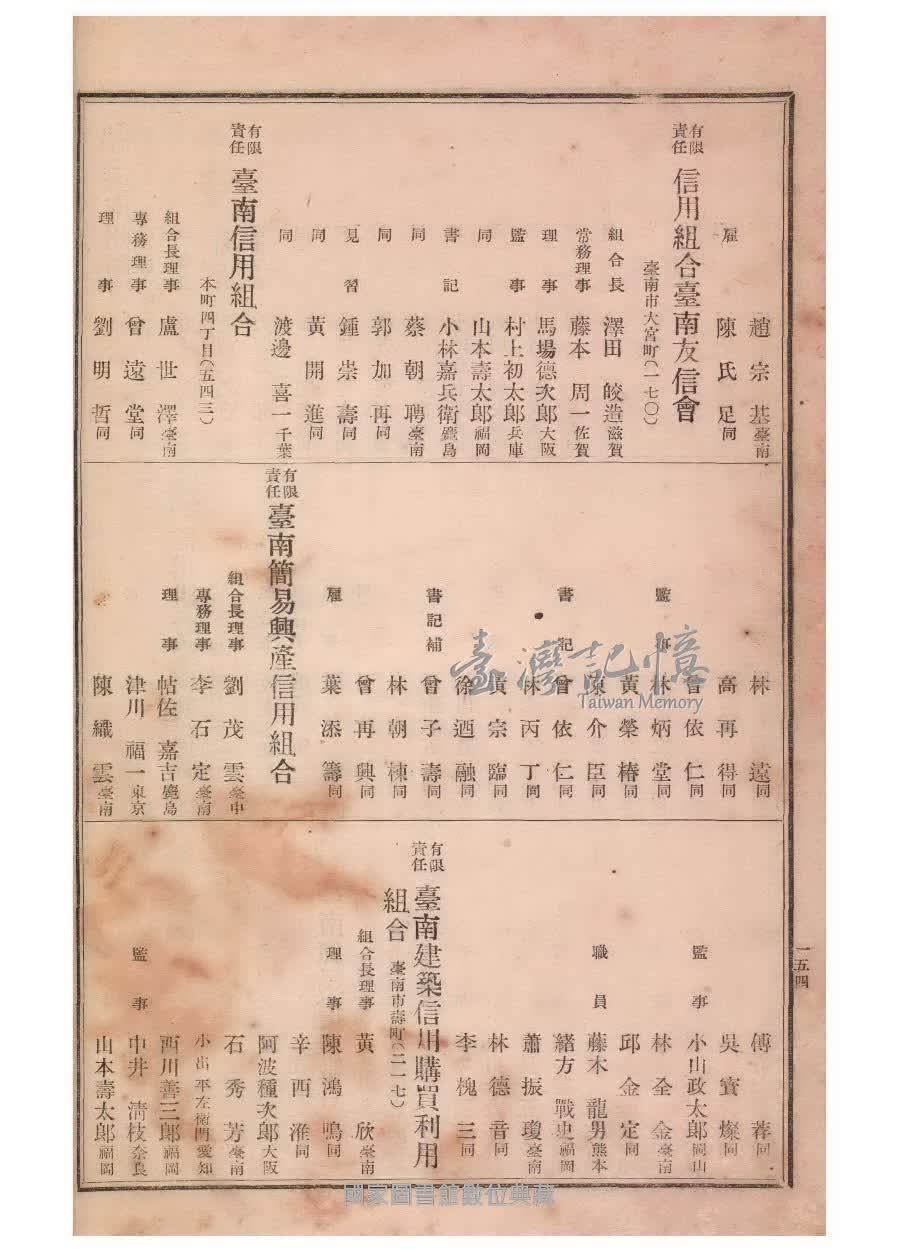 趙宗基臺南
雇 陳氏足同
有限責任 信用組合臺南友信會
臺南市大宮町(一七〇)
組合長 澤田皎造滋賀
常務理事 藤本周一佐賀
理事 馬場德次郎大阪
監事 村上初太郎兵庫
同 山本壽太郎福岡
書記 小林嘉兵衛鹿島
同 蔡朝聘臺南
同 郭加再同
見習 鍾崇壽同
同 黃開進同
同 渡邊喜一千葉
有限責任 臺南信用組合
本町四丁目(五四三)
組合長理事 盧世澤臺南
專務理事 曾遠堂同
理事 劉明哲同
林遠同
高再得同
曾依仁同
監事 林炳堂同
黃榮椿同
陳介臣同
書記 曾依仁同
林丙丁同
黃宗臨同
徐迺融同
書記補 曾子壽同
林朝棟同
曾再興同
雇 葉添籌同
有限責任 臺南簡易興產信用組合
組合長理事 劉茂雲臺中
專務理事 李石定臺南
理事 帖佐嘉吉鹿島
津川福一東京
陳纖雲臺南
傅蓉同
吳寶燦同
監事 小山政太郎岡山
林全金臺南
邱金定同
職員 藤木龍男熊本
緒方戰史福岡
蕭振瓊臺南
林德音同
李槐三同
有限責任 臺南建築信用購買利用
組合 臺南市壽町(二一七)
組合長理事 黃欣臺南
理事 陳鴻鳴同
辛西淮同
阿波種次郎大阪
石秀芳臺南
小出平左衛門愛知
西川善三郎福岡
監事 中井清枝奈良
山本壽太郎福岡
一五四
臺灣記憶
Taiwan Memory
國家圖書館數位典藏